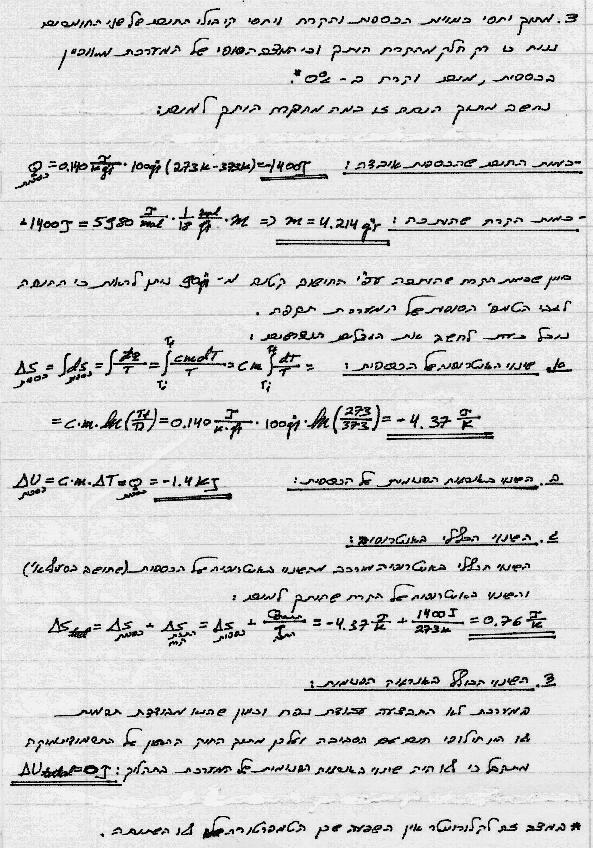 3. מתוך יחסי כמויות הכספית והקרח ויחסי קיבולי החום של שני החומרים
נניח כי רק חלק מהקרח הותך וכי המצב הסופי של המערכת
כספית, מים וקרח ב- 0°*.
נחשב מתוך הנחה זו כמה מהקרח הותך למים:
- כמות החום שהכספית איבדה: Q כספית = 0.140 J/k·gr · 100gr (273k - 373k) = -1400J
- כמות הקרח שהותכה: +1400J = 5980 J/mol · 1/18 mol/gr · m => m = 4.214 gr
כיוון שכמות הקרח שהותכה עפ"י החישוב קטנה מ- 50gr ניתן לראות כי ההנחה
לגבי הטמפ' הסופית של המערכת תקפה.
נוכל כעת לחשב את הגדלים הנדרשים:
א. שינוי האנטרופיה של הכספית: ΔS כספית = ∫ds כספית = ∫dq/T = ∫Ti Tf cmdT/T = cm ∫Ti Tf dT/T =
= c·m·ln(Tf/Ti) = 0.140 J/k·gr · 100gr · ln(273/373) = -4.37 J/k
ב. השינוי באנרגיה הפנימית של הכספית: ΔU כספית = C·m·ΔT = Q כספית = -1.4kJ
ג. השינוי הכללי באנטרופיה:
השינוי הכללי באנטרופיה מורכב מהשינוי באנטרופיה של הכספית (שחושב בסעיף א')
והשינוי באנטרופיה של הקרח שהותך למים:
ΔS total = ΔS כספית + ΔS התכת קרח = ΔS כספית + Q/T = -4.37 J/k + 1400J/273k = 0.76 J/k
ד. השינוי הכולל באנרגיה הפנימית:
במערכת לא התבצעה עבודת נפח וכיוון שהיא מבודדת תרמית
לא היו חילופי חום עם הסביבה ולכן מתוך החוק הראשון של התרמודינמיקה
מתקבל כי לא היה שינוי באנרגיה הפנימית של המערכת בתהליך: ΔU total = 0J
* במצב זה לקלורימטר אין השפעה שכן הטמפרטורה שלו לא השתנתה.